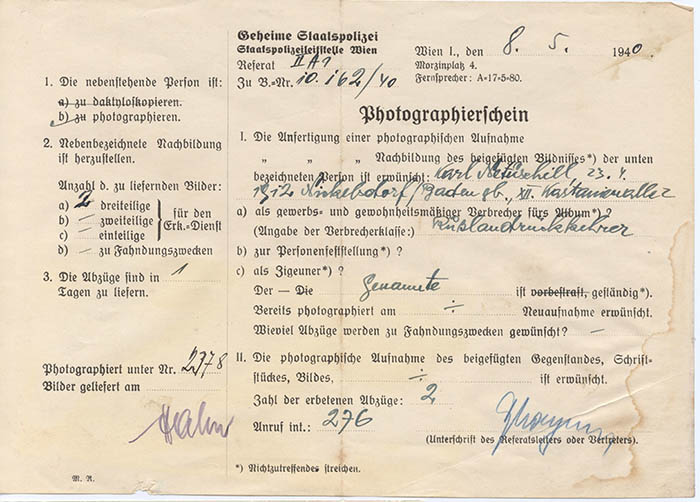 Geheime Staatspolizei
Staatspolizeileitstelle Wien
Referat II A 1
Zu B.-Nr. 10.162/40
Wien I., den 8. 5. 1940.
Morzinplatz 4.
Fernsprecher: A=17=5=80.
1. Die nebenstehende Person ist:
a) zu daktyloskopieren.
b) zu photographieren.
2. Nebenbezeichnete Nachbildung
ist herzustellen.
Anzahl d. zu liefernden Bilder:
a) 2 dreiteilige
b) – zweiteilige
c) – einteilige
für den
Erk.=Dienst
d) – zu Fahndungszwecken
3. Die Abzüge sind in 1
Tagen zu liefern.
Photographiert unter Nr. 2378
Bilder geliefert am
Hahn
M. R.
Photographierschein
I. Die Anfertigung einer photographischen Aufnahme
„ „ „ Nachbildung des beigefügten Bildnisses*) der unten
bezeichneten Person ist erwünscht: Karl 23. 4.
1912 / Baden gb., XII.
a) als gewerbs= und gewohnheitsmäßiger Verbrecher fürs Album*)?
(Angabe der Verbrecherklasse:) Rußlandrückkehrer
b) zur Personenfeststellung*) ?
c) als Zigeuner*) ?
Der — Die Genannte ist vorbestraft, geständig*).
Bereits photographiert am ÷ Neuaufnahme erwünscht.
Wieviel Abzüge werden zu Fahndungszwecken gewünscht? –
II. Die photographische Aufnahme des beigefügten Gegenstandes, Schrift=
stückes, Bildes, ÷ ist erwünscht.
Zahl der erbetenen Abzüge: 2
Anruf int.: 276
(Unterschrift des Referatsleiters oder Vertreters).
*) Nichtzutreffendes streichen.